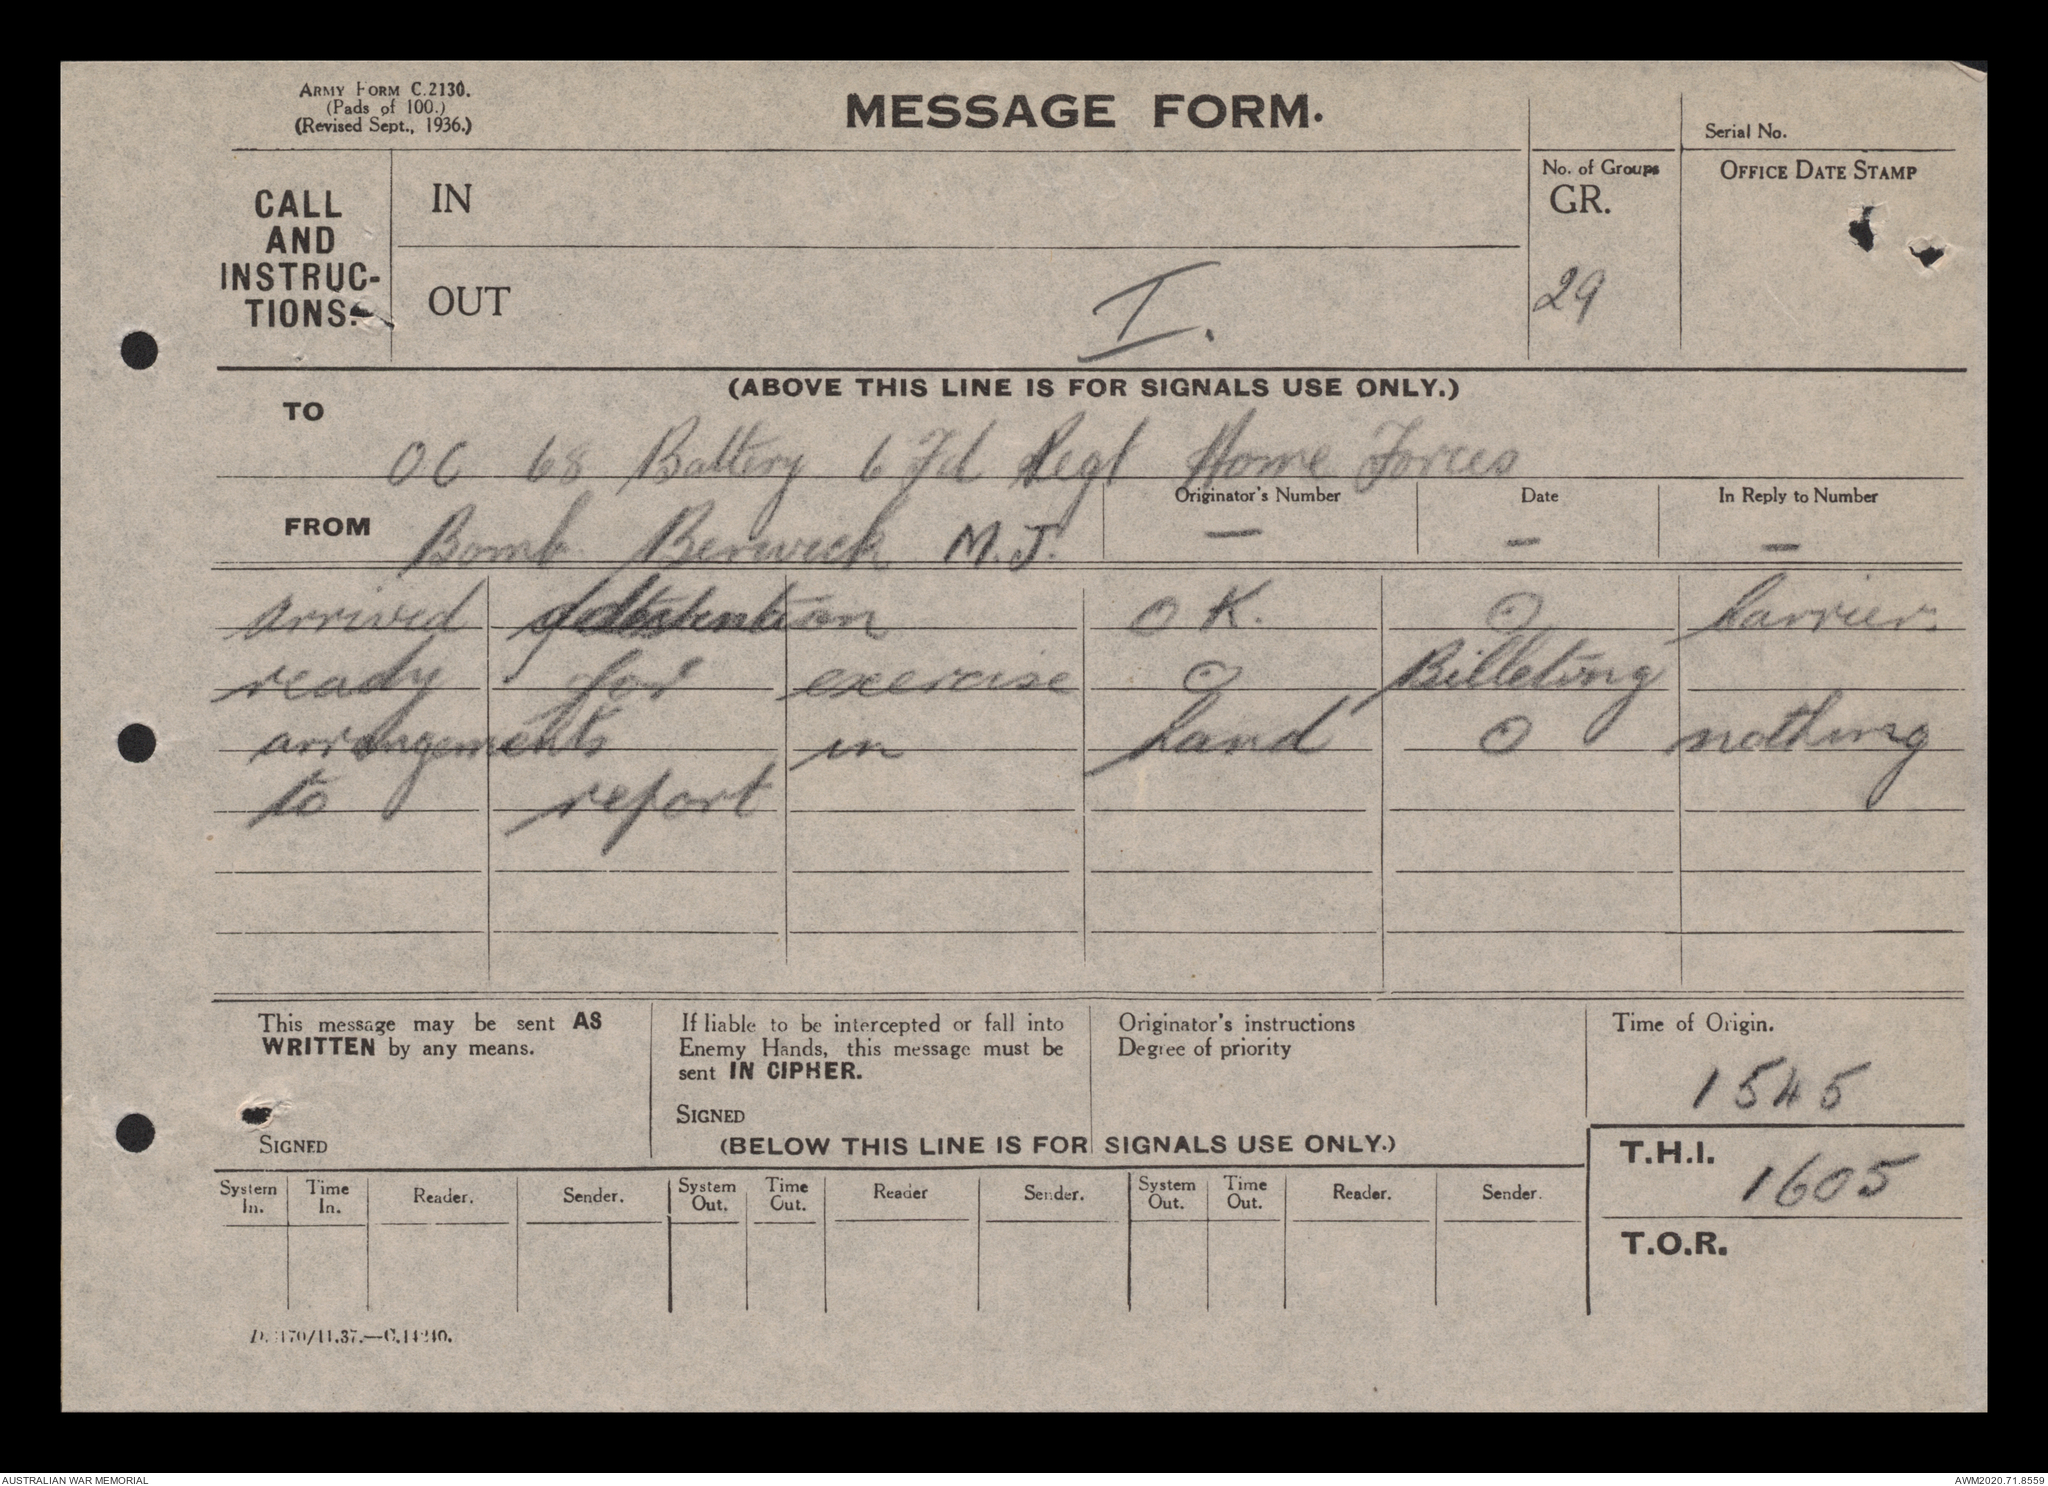 ARMY FORM C.2130.
(Pads of 100.)
(Revised Sept., 1936.)
MESSAGE FORM.
Serial No.
CALL AND INSTRUC-TIONS.
IN
No. of Groups
GR.
OFFICE DATE STAMP
OUT
I.
29
(ABOVE THIS LINE IS FOR SIGNALS USE ONLY.)
TO
OC 68 Battery 67d Regt Home Forces
Originator's Number
Date
In Reply to Number
FROM Bomb. Berwick M.J. — — —
arrived OK. O Carrier.
ready for exercise O Billeting
arrangements in hand O nothing
to report
This message may be sent AS
WRITTEN by any means.
SIGNED
If liable to be intercepted or fall into
Enemy Hands, this message must be
sent IN CIPHER.
SIGNED
Originator's instructions
Degree of priority
Time of Origin.
1545
(BELOW THIS LINE IS FOR SIGNALS USE ONLY.)
T.H.I. 1605
System In. Time In. Reader. Sender. System Out. Time Out. Reader Sender. System Out. Time Out. Reader. Sender.
T.O.R.
AUSTRALIAN WAR MEMORIAL
AWM2020.71.8559